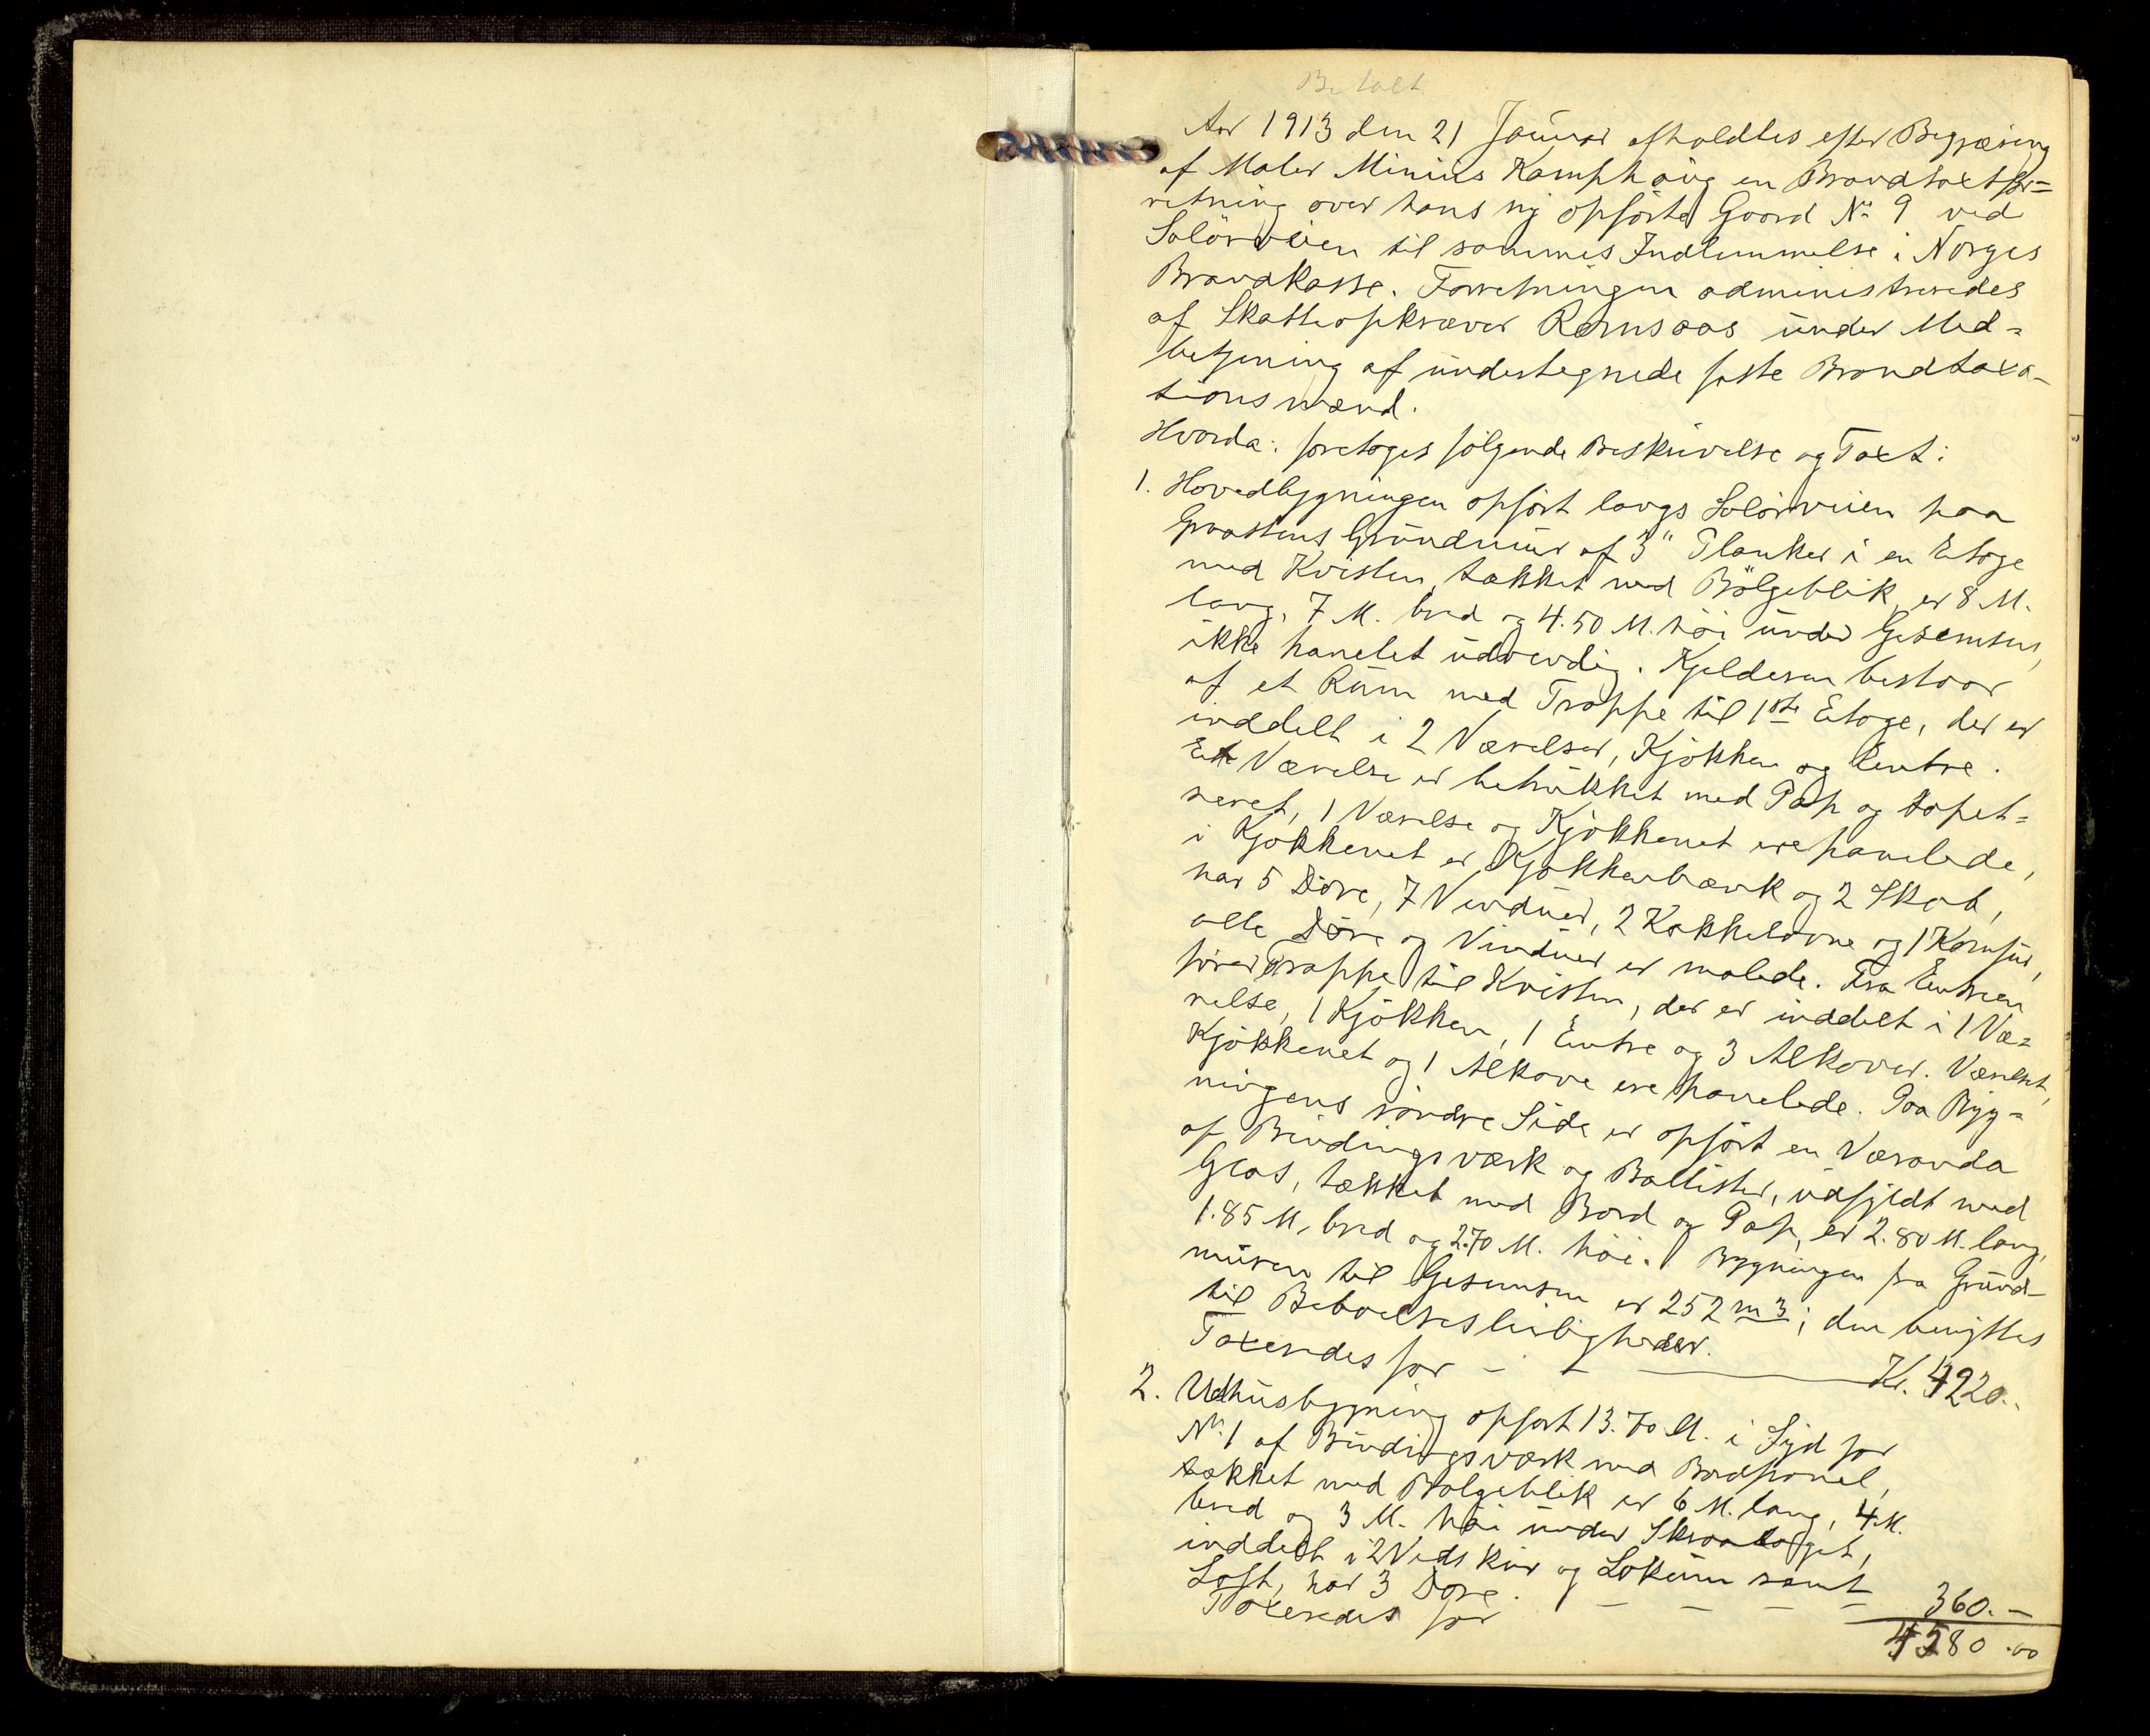 Betalt
Aar 1913 den 21 Januar afholdtes efter Begjæring
af Maler Minius Kamphaug en Brandtaxtfor=
retning over hans ny opførte Gaard No 9 ved
Solørveien til sammes Indlemmelse i Norges
Brandkasse. Forretningen administreredes
af Skatteopkræver Ramsaas under Med=
betjening af undertegnede faste Brandtaxa-
tionsmænd.
Hvorda: foretoges følgende Beskrivelse og Taxt:
1. Hovedbygningen opført langs Solørveien paa
Graastens Grundmur af 3" Planker i en Etage
med Kvisten, tækket med Bølgeblik, er 8 M.
lang, 7 M. bred og 4.50 M. høi under Gesemsen,
ikke panelet udvendig. Kjelderen bestaar
af et Rum med Trappe til 1ste Etage, der er
inddelt i 2 Værelser, Kjøkken og Entre.
Et Værelse er betrukket med Pap og tapet=
seret, 1 Værelse og Kjøkkenet ere panelede,
i Kjøkkenet er Kjøkkenbænk og 2 Skab,
har 5 Døre, 7 Vinduer, 2 Kakkelovne og 1 Komfur,
alle Døre og Vinduer er malede. Fra Entreen
fører Trappe til Kvisten, der er inddelt i 1 Væ=
relse, 1 Kjøkken, 1 Entre og 3 Alkover. Værelset,
Kjøkkenet og 1 Alkove ere panelede. Paa Byg=
ningens søndre Side er opført en Veranda
af Bindingsværk og Ballister, udfyldt med
Glas, tækket med Bord og Pap, er 2.80 M. lang,
1.85 M, bred og 2.70 M. høi. Bygningen fra Grund-
muren til Gesemsen er 252 m3; den benyttes
til Beboelsesleiligheder.
Taxeredes for - - Kr. 4220.
2. Udhusbygning opført 13.70 M. i Syd for
No 1 af Bindingsværk med Bordpanel,
tækket med Bølgeblik er 6 M. lang, 4 M.
bred og 3 M. høi under Skraataget,
inddelt i 2 Vedskur og Lokum samt
Loft, har 3 Døre.
Taxeredes for - - - - 360.-
4580.00